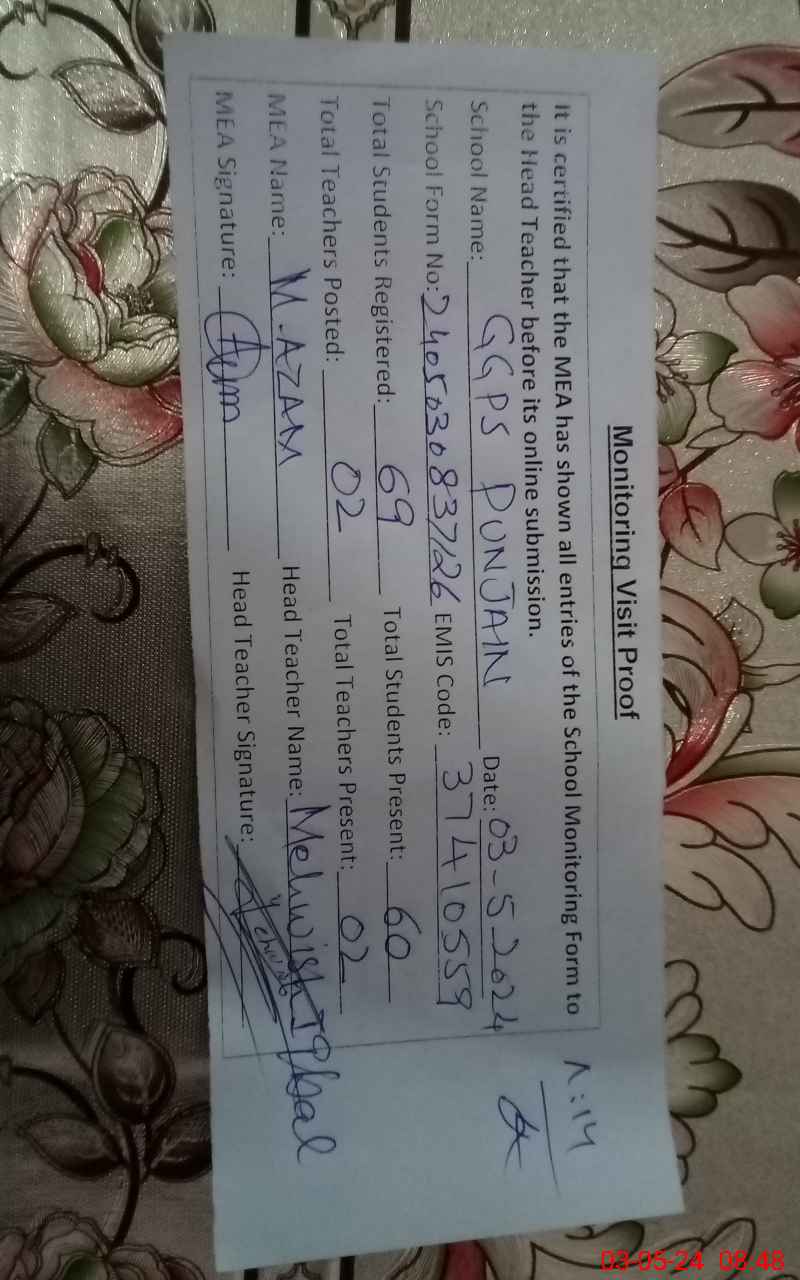 Monitoring Visit Proof
It is certified that the MEA has shown all entries of the School Monitoring Form to
the Head Teacher before its online submission.
School Name: GGPS PUNJAIN Date: 03-5-2024
School Form No: 2405030837126 EMIS Code: 37410559
Total Students Registered: 69 Total Students Present: 60
Total Teachers Posted: 02 Total Teachers Present: 02
MEA Name: M.AZAM Head Teacher Name: Mehwish Iqbal
MEA Signature: Head Teacher Signature:
03-05-24 08:48